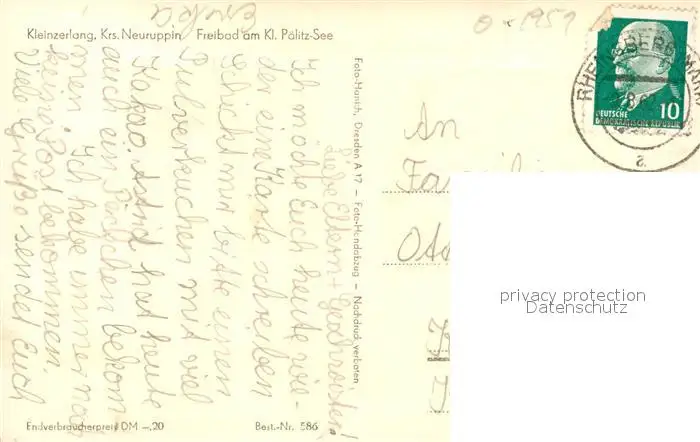 Kleinzerlang, Krs. Neuruppin    Freibad am Kl. Pälitz-See
1959
RHEINSBERG (MARK)
10
DEUTSCHE
DEMOKRATISCHE REPUBLIK
a
Liebe Eltern + Geschwister!
Ich möchte Euch heute wie-
der eine Karte schreiben
Schickt mir bitte einen
Pulverkuchen mit viel
Kakao. Astrid hat heute
auch ein Päckchen bekom
men. Ich habe immer noch
keine Post bekommen.
Viele Grüße sendet Euch
Erika
Foto-Hanich, Dresden A 17 – Foto-Handabzug – Nachdruck verboten
An
Fa
privacy protection
Datenschutz
Endverbraucherpreis DM –.20
Best.-Nr. 586